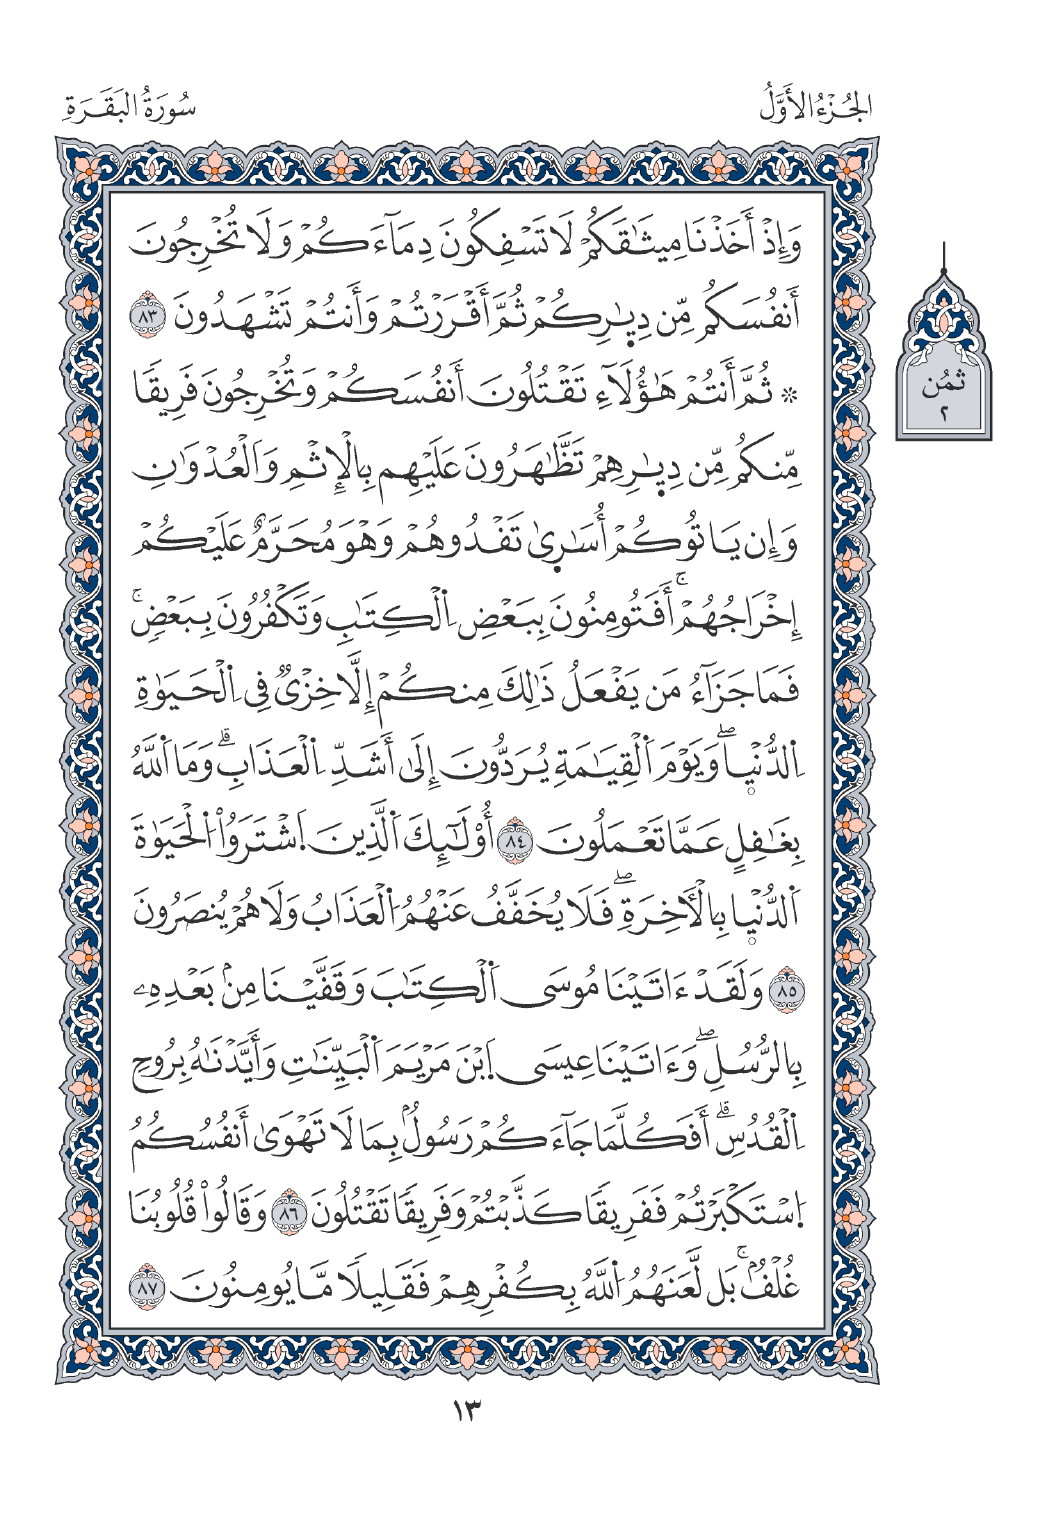 الجُزْءُ الأَوَّلُ
سُورَةُ البَقَرَةِ
وَإِذْ أَخَذْنَا مِيثَٰقَكُمْ لَا تَسْفِكُونَ دِمَآءَكُمْ وَلَا تُخْرِجُونَ
أَنفُسَكُم مِّن دِيٰ۪رِكُمْ ثُمَّ أَقْرَرْتُمْ وَأَنتُمْ تَشْهَدُونَ ٨٣
۞ ثُمَّ أَنتُمْ هَٰٓؤُلَآءِ تَقْتُلُونَ أَنفُسَكُمْ وَتُخْرِجُونَ فَرِيقًا
مِّنكُم مِّن دِيٰ۪رِهِمْ تَظَّٰهَرُونَ عَلَيْهِم بِالْإِثْمِ وَالْعُدْوَٰنِ
وَإِن يَاتُوكُمْ أُسَٰر۪يٰ تَفْدُوهُمْ وَهْوَ مُحَرَّمٌ عَلَيْكُمْ
إِخْرَاجُهُمْۚ أَفَتُومِنُونَ بِبَعْضِ اِ۬لْكِتَٰبِ وَتَكْفُرُونَ بِبَعْضٍۚ
فَمَا جَزَآءُ مَن يَفْعَلُ ذَٰلِكَ مِنكُمْ إِلَّا خِزْيٌ فِي اِ۬لْحَيَوٰةِ
اِ۬لدُّنْي۪اۖ وَيَوْمَ اَ۬لْقِيَٰمَةِ يُرَدُّونَ إِلَىٰ أَشَدِّ اِ۬لْعَذَابِۗ وَمَا اَ۬للَّهُ
بِغَٰفِلٍ عَمَّا تَعْمَلُونَ ٨٤ أُوْلَٰٓئِكَ اَ۬لَّذِينَ اَ۪شْتَرَوُاْ اُ۬لْحَيَوٰةَ
اَ۬لدُّنْي۪ا بِالْأٓخِرَةِۖ فَلَا يُخَفَّفُ عَنْهُمُ اُ۬لْعَذَابُ وَلَا هُمْ يُنصَرُونَ
٨٥ وَلَقَدْ ءَاتَيْنَا مُوسَى اَ۬لْكِتَٰبَ وَقَفَّيْنَا مِنۢ بَعْدِهِۦ
بِالرُّسُلِۖ وَءَاتَيْنَا عِيسَى اَ۪بْنَ مَرْيَمَ اَ۬لْبَيِّنَٰتِ وَأَيَّدْنَٰهُ بِرُوحِ
اِ۬لْقُدُسِۗ أَفَكُلَّمَا جَآءَكُمْ رَسُولُۢ بِمَا لَا تَهْوَىٰ أَنفُسُكُمُ
اُ۪سْتَكْبَرْتُمْ فَفَرِيقًا كَذَّبْتُمْ وَفَرِيقًا تَقْتُلُونَ ٨٦ وَقَالُواْ قُلُوبُنَا
غُلْفُۢۚ بَل لَّعَنَهُمُ اُ۬للَّهُ بِكُفْرِهِمْ فَقَلِيلًا مَّا يُومِنُونَ ٨٧
ثمُن
٢
١٣